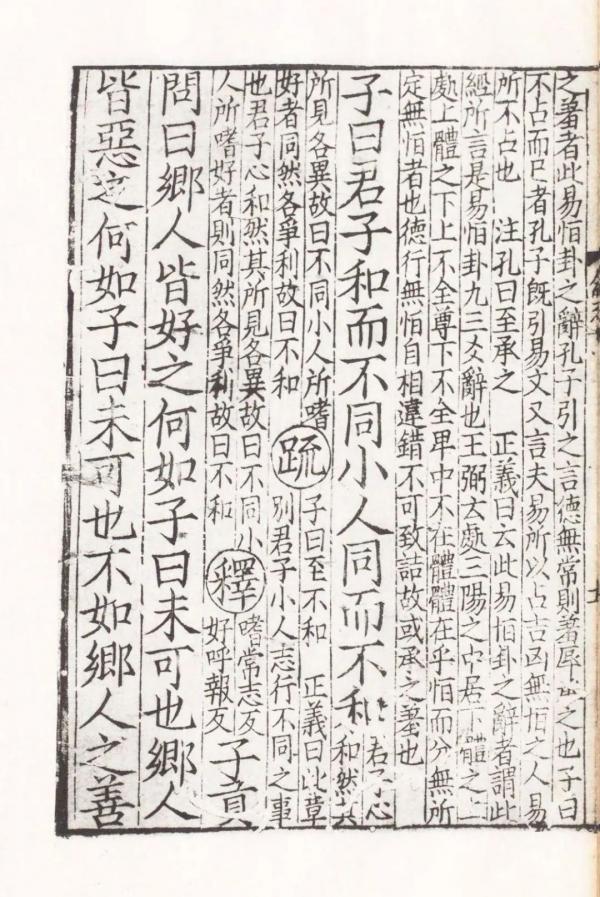 之羞者此易恒卦之辭孔子引之言德無常則羞辱承之也子曰
不占而已者孔子旣引易文又言夫易所以占吉凶無恒之人易
所不占也　注孔曰至承之　正義曰云此易恒卦之辭者謂此
經所言是易恒卦九三爻辭也王弼云處三陽之中居下體之上
處上體之下上不全尊下不全卑中不在體體在乎恒而分無所
定無恒者也德行無恒自相違錯不可致詰故或承之羞也
子曰君子和而不同小人同而不和
君子心
和然其
所見各異故曰不同小人所嗜
好者同然各爭利故曰不和
疏
子曰至不和　正義曰此章
別君子小人志行不同之事
也君子心和然其所見各異故曰不同小
人所嗜好者則同然各爭利故曰不和
釋
嗜常志反
好呼報反
子貢
問曰鄉人皆好之何如子曰未可也鄉人
皆惡之何如子曰未可也不如鄉人之善